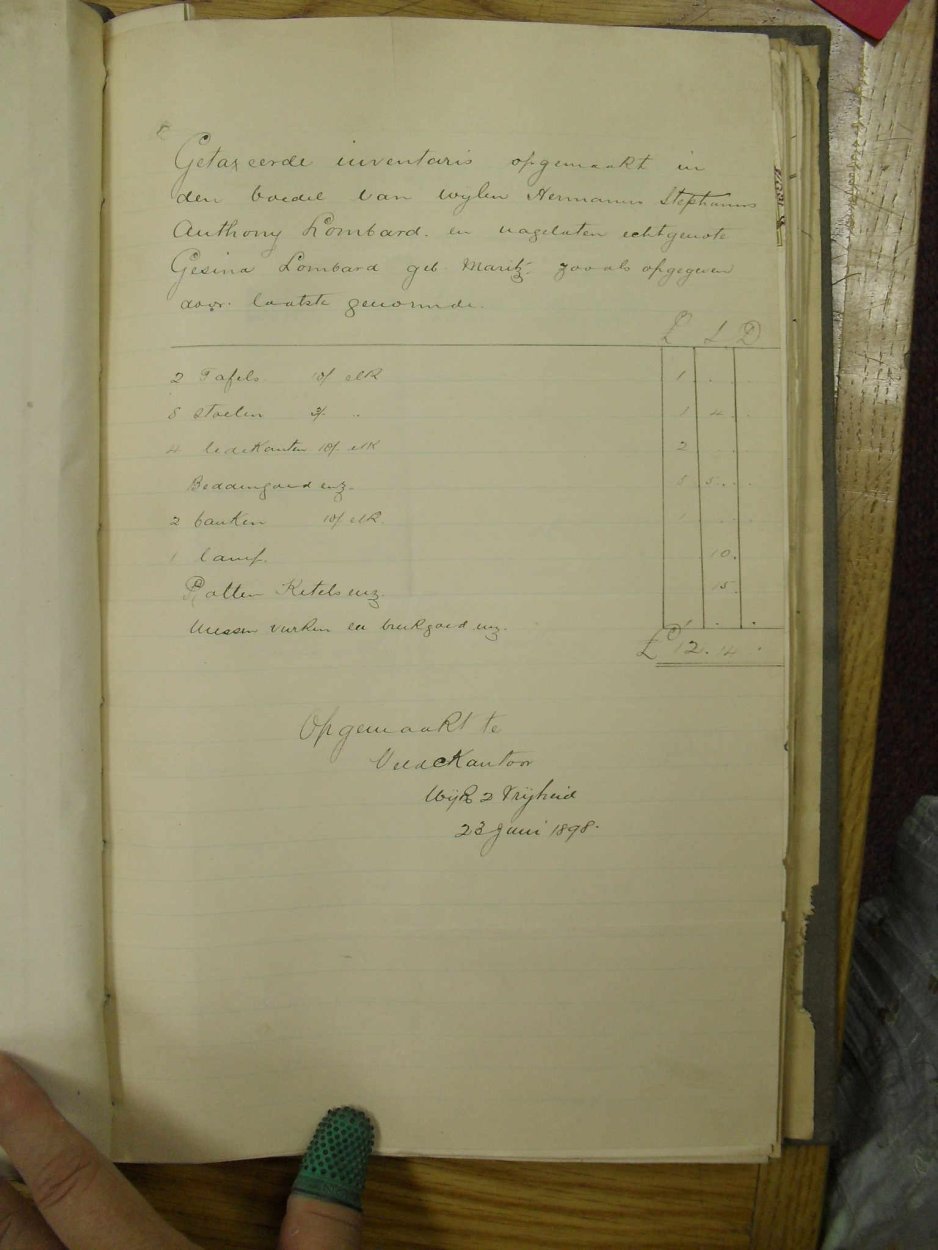 Getaxeerde inventaris opgemaakt in
den boedel van wylen Hermanus Stephanus
Anthony Lombard. en nagelaten echtgenote
Gesina Lombard geb. Maritz. zooals opgegeven
door laatste genoemde.
£ S D
2 Tafels 10/ elk 1
8 stoelen 3/ . 1 4
4 ledekanten 10/ elk 2
Beddingoed enz. 5 5
2 banken 10/ elk.
1 lamp. 10.
Potten Ketels enz. 15.
Messen vurken en breekgoed enz. 1
£ 12. 14
Opgemaakt te
Veldkantoor
Wijk 2 Vrijheid
23 Juni 1898.